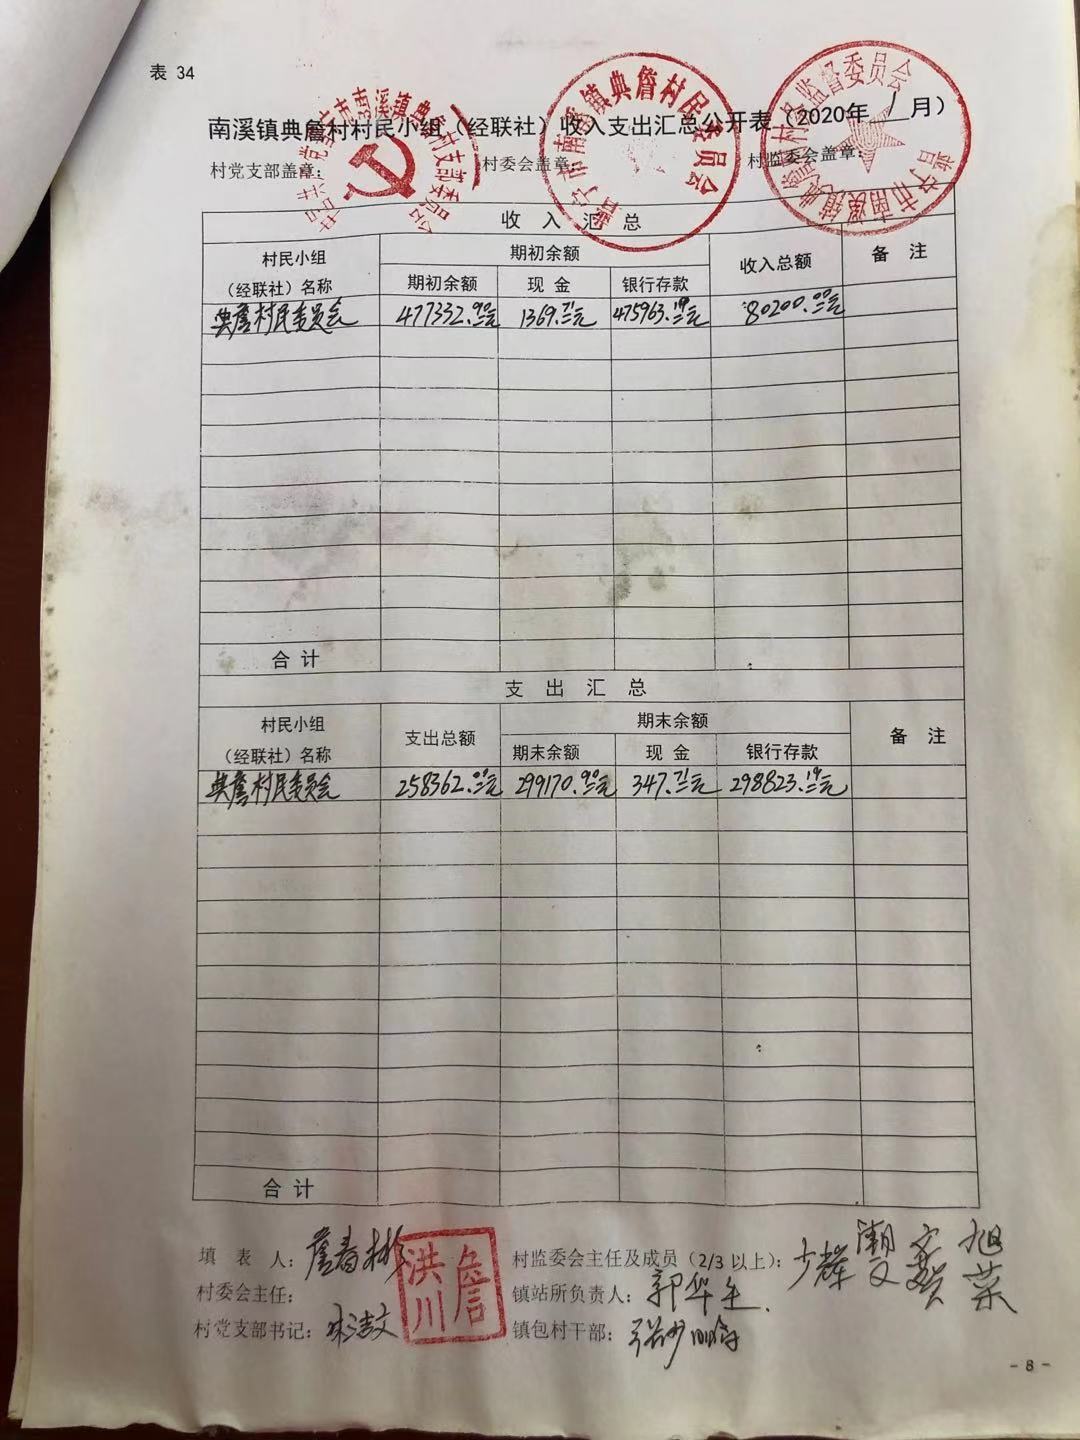 表 34
南溪镇典詹村村民小组（经联社）收入支出汇总公开表（2020年 1 月）
村党支部盖章： 村委会盖章： 村监委会盖章：
普宁市南溪镇典詹村民委员会
普宁市南溪镇典詹村村务监督委员会
收 入 汇 总
村民小组（经联社）名称 期初余额 收入总额 备 注
期初余额 现 金 银行存款
典詹村民委员会 477332.90元 1369.71元 475963.19元 80200.00元
合 计
支 出 汇 总
村民小组（经联社）名称 支出总额 期末余额 备 注
期末余额 现 金 银行存款
典詹村民委员会 258362.00元 299170.90元 347.71元 298823.19元
合 计
填 表 人：詹春彬 村监委会主任及成员（2/3 以上）：少辉
村委会主任： 詹洪川 镇站所负责人：郭华生
村党支部书记： 镇包村干部：
- 8 -